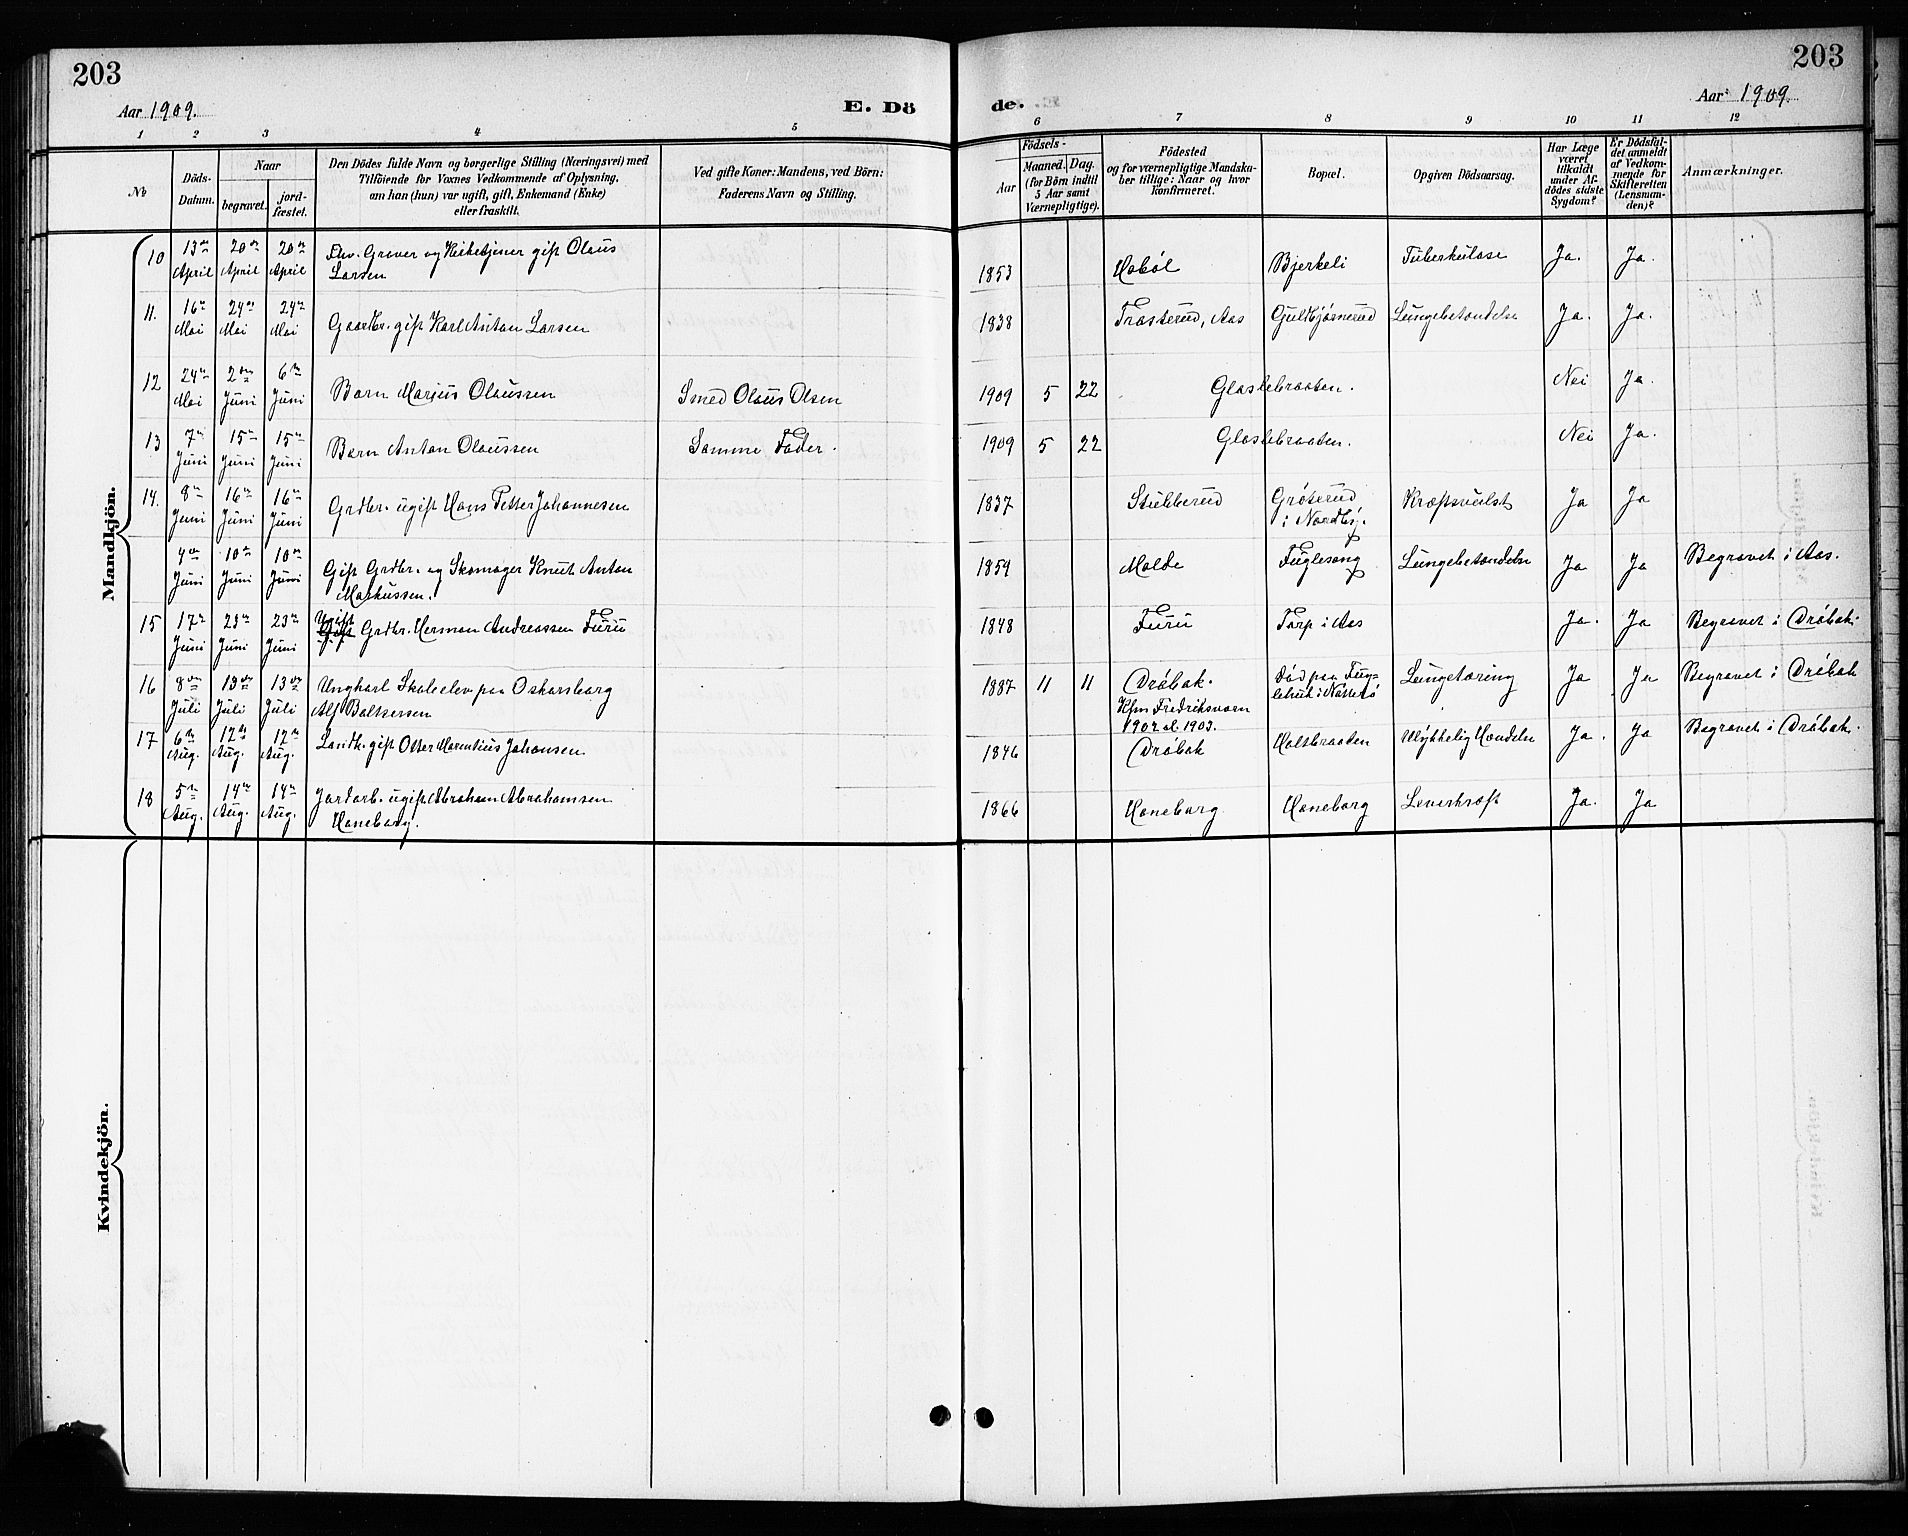 203
203
Aar 1909.
E. Dö
de.
Aar 1909.
1 2 3 4 5 6 7 8 9 10 11 12
№
Döds-
Datum.
Naar
begravet.
jord-
fæstet.
Den Dödes fulde Navn og borgerlige Stilling (Næringsvei) med
Tilföiende for Voxnes Vedkommende af Oplysning,
om han (hun) var ugift, gift, Enkemand (Enke)
eller fraskilt.
Ved gifte Koner: Mandens, ved Börn:
Faderens Navn og Stilling.
Födsels-
Aar
Maaned. Dag.
(for Börn indtil
5 Aar samt
Værnepligtige).
Födested
og for værnepligtige Mandska-
ber tillige: Naar og hvor
konfirmeret.
Bopæl.
Opgiven Dödsaarsag.
Har Læge
været
tilkaldt
under Af-
dödes sidste
Sygdom?
Er Dödsfal-
det anmeldt
af Vedkom-
mende for
Skifteretten
(Lensman-
den)?
Anmærkninger.
Mandkjön.
10 13de April 20de April 20de April Fhv. Graver og Kirketjener gift Olaus
Larsen 1853 Hobøl Bjerkeli Tuberkulose Ja. Ja.
11. 16de Mai 24de Mai 24de Mai Gaardbr. gift Karl Anton Larsen 1838 Trosterud, Aas Gulbjørnerud Lungebetændelse Ja. Ja.
12 24de Mai 2den Juni 6te Juni Barn Marius Olaussen Smed Olaus Olsen 1909 5 22 Glaslebraaten. Nei Ja.
13 7de Juni 15de Juni 15de Juni Barn Anton Olaussen Samme Fader. 1909 5 22 Glaslebraaten. Nei Ja.
14. 8de Juni 16de Juni 16de Juni Grdbr. ugift Hans Petter Johannesen 1837 Stubberud Grøterud
i Nordby. Kræftsvulst Ja Ja
4de Juni 10de Juni 10de Juni Gift Grdbr. og Skomager Knut Anton
Markussen. 1859 Molde Fuglesang Lungebetændelse Ja Ja Begravet i Aas.
15 17de Juni 23de Juni 23de Juni Ugift
Gift Grdbr. Herman Andreassen Furu 1848 Furu Torp i Aas Ja. Ja Begravet i Drøbak.
16 8de Juli 13de Juli 13de Juli Ungkarl Skoleelev paa Oskarsborg
Alf Boltersen 1887 11 11 Drøbak. Død paa Fug-
Kfm Fredriksværn
1902 el. 1903. Lungetæring Ja Ja Begravet i Drøbak
17 6te Aug. 12te Aug. 12te Aug. Landh. gift Otter Marentius Johansen 1846 Drøbak Holtbraaten Ulykkelig Hændelse Ja. Ja Begravet i Drøbak.
18 5te Aug. 14de Aug. 14de Aug. Jordarb. ugift Abraham Abrahamsen
Haneborg. 1866 Haneborg Haneborg Leverkræft Ja. Ja
Kvindekjön.